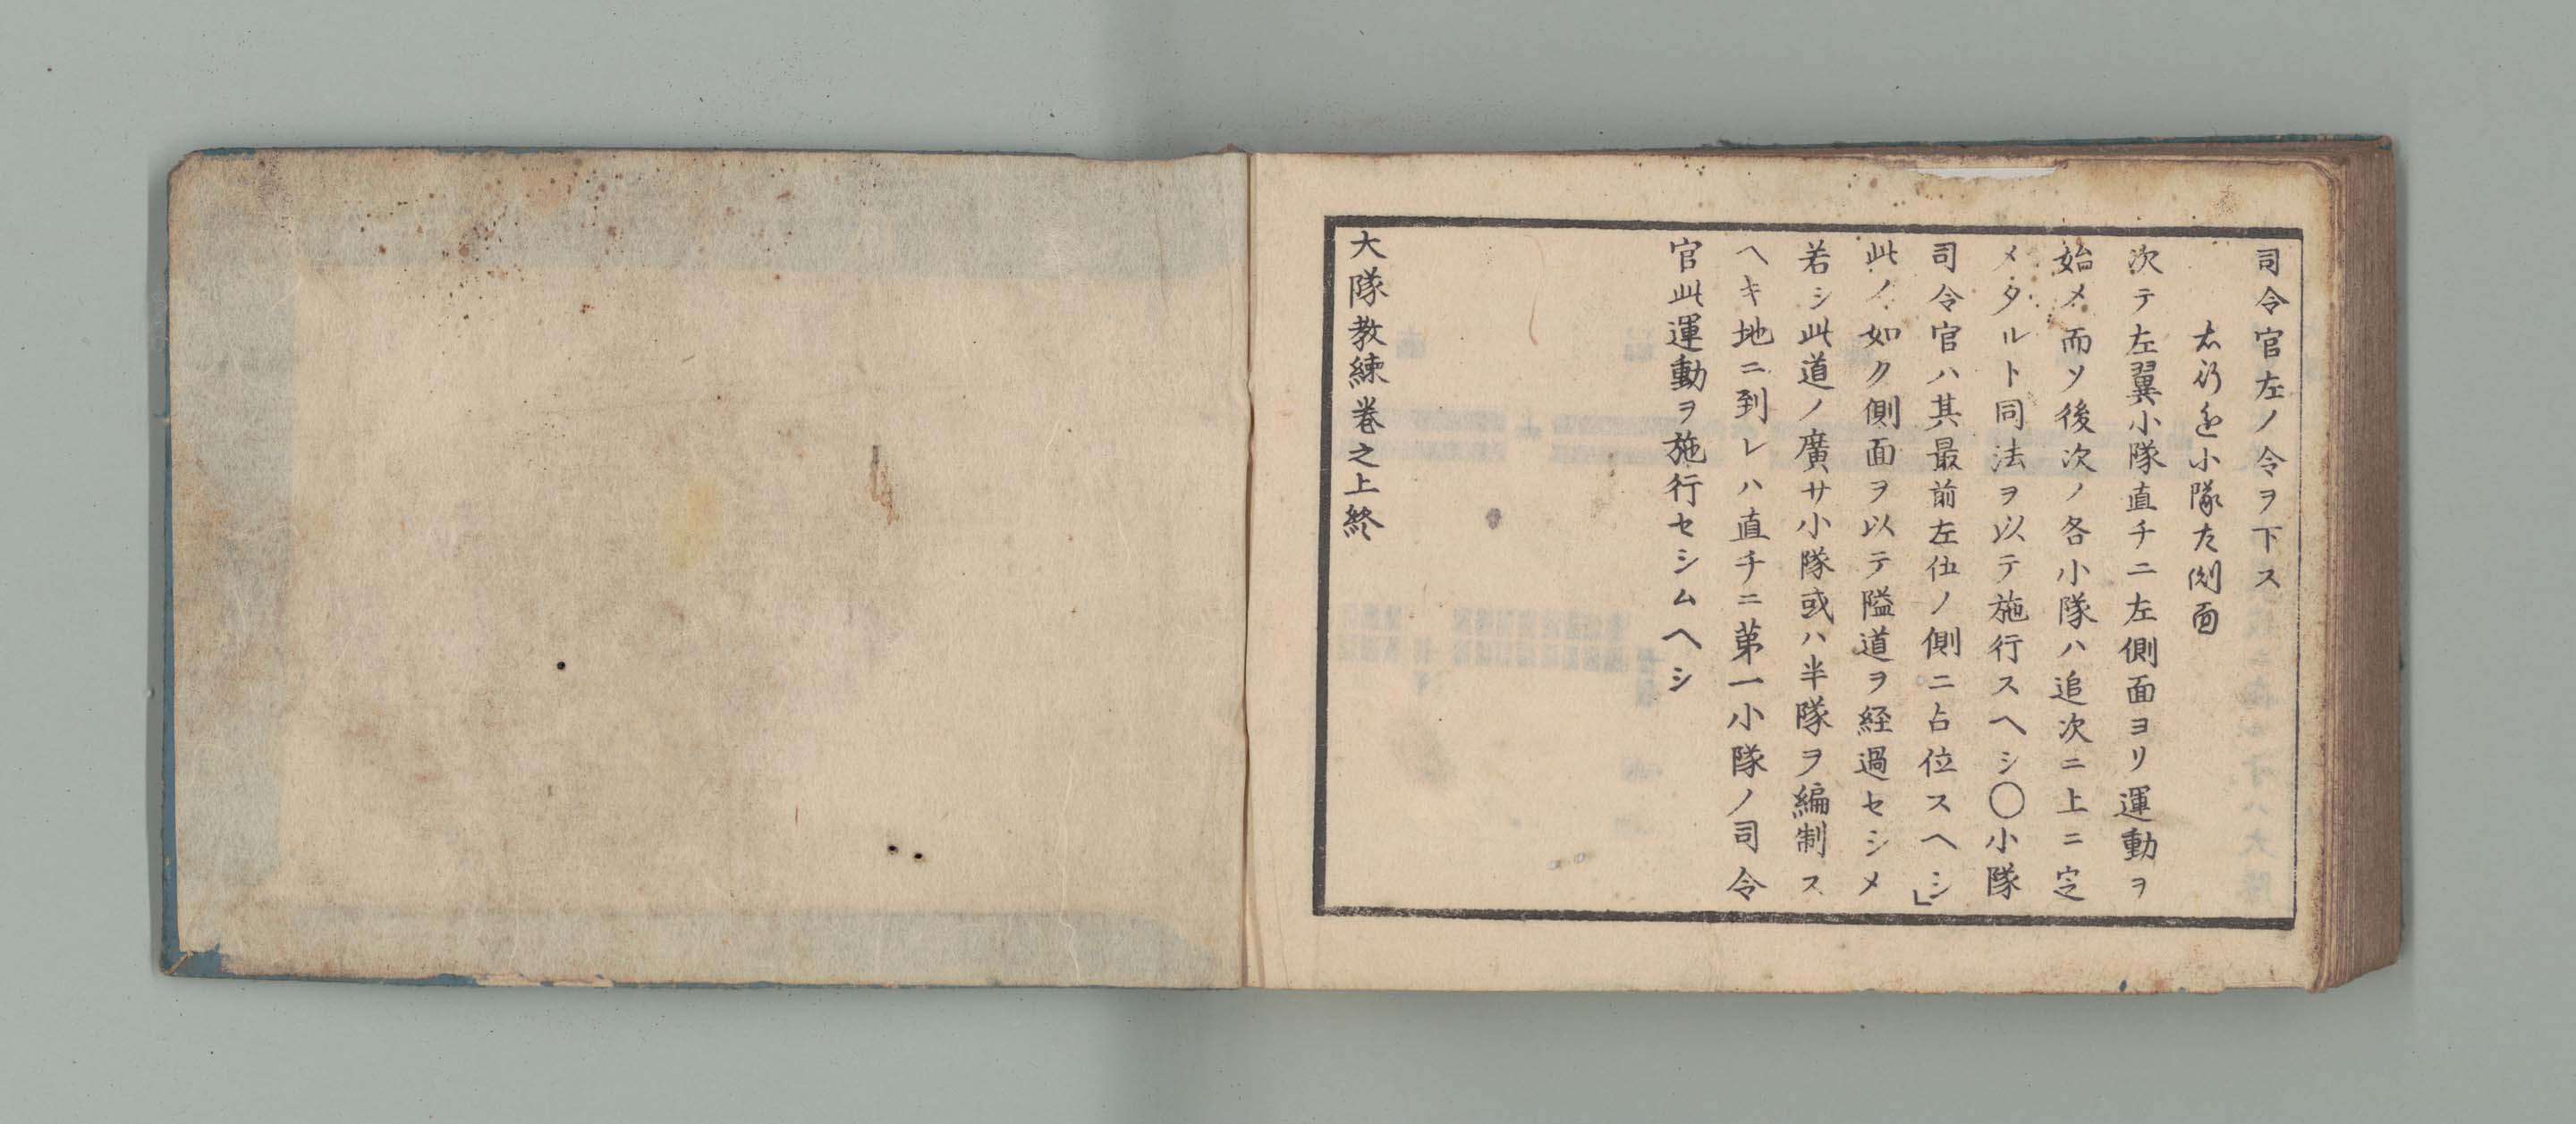 司令官左ノ令ヲ下ス
右行進小隊左側面
次テ左翼小隊直チニ左側面ヨリ運動ヲ
始メ而ソ後次ノ各小隊ハ追次ニ上ニ定
メタルト同法ヲ以テ施行スヘシ〇小隊
司令官ハ其最前左伍ノ側ニ占位スヘシ」
此ノ如ク側面ヲ以テ隘道ヲ経過セシメ
若シ此道ノ廣サ小隊或ハ半隊ヲ編制ス
ヘキ地ニ到レハ直チニ第一小隊ノ司令
官此運動ヲ施行セシムヘシ
大隊教練巻之上終